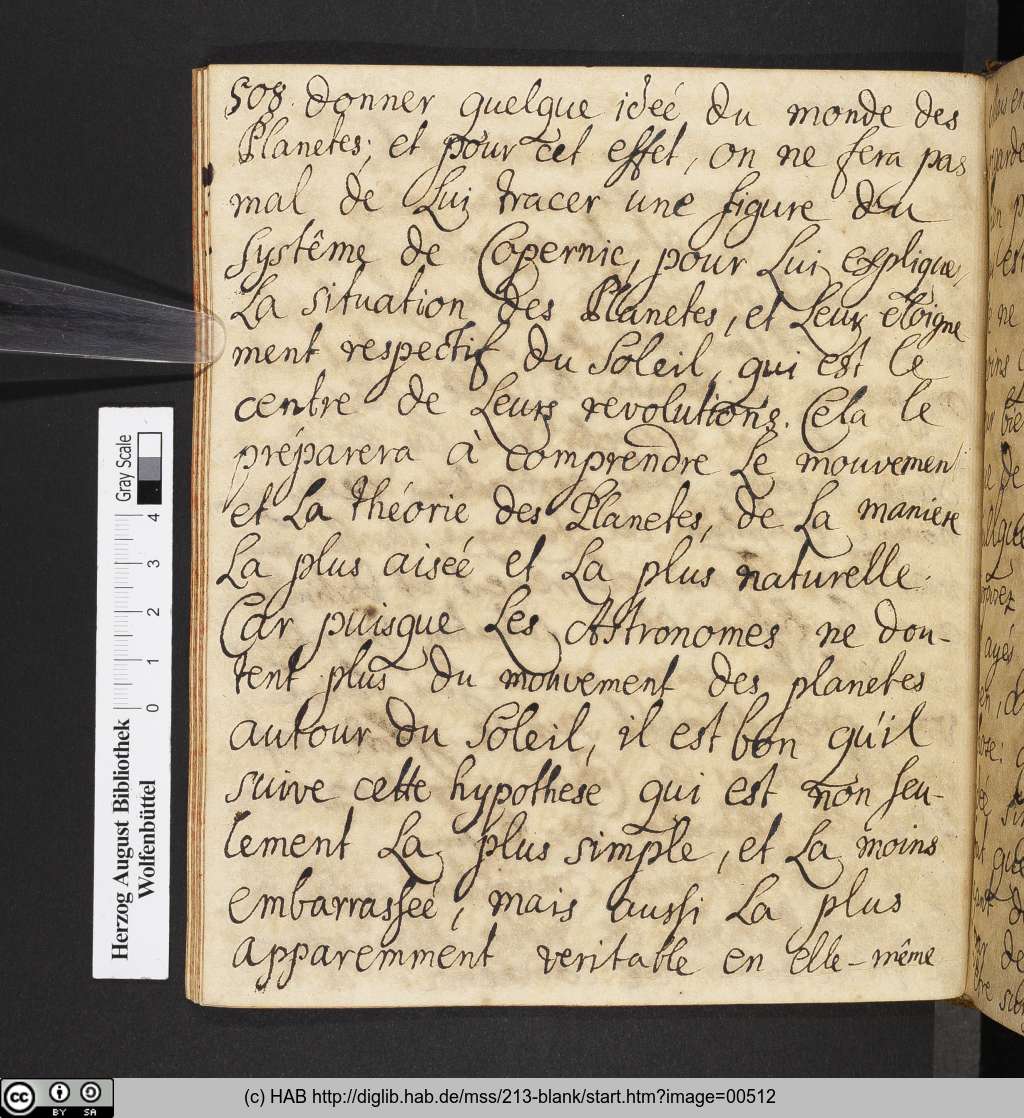 508. donner quelque ideé du monde des
Planetes; et pour cet effet, on ne fera pas
mal de Lui tracer une figure du
Systême de Copernic, pour Lui explique,
La situation des Planetes, et Leur eloigne
ment respectif du Soleil, qui est le
centre de Leurs revolutions. Cela le
préparera à comprendre Le mouvement
et La théorie des Planetes, de La maniere
La plus aiseé et La plus naturelle.
Car puisque Les Astronomes ne dou-
tent plus du mouvement des planetes
autour du Soleil, il est bon qu'il
suive cette hypothese qui est non seu-
lement La plus simple, et La moins
embarrasseé, mais aussi La plus
apparemment veritable en elle-même
Herzog August Bibliothek
Wolfenbüttel
Gray Scale
0 1 2 3 4
cc BY SA
(c) HAB http://diglib.hab.de/mss/213-blank/start.htm?image=00512